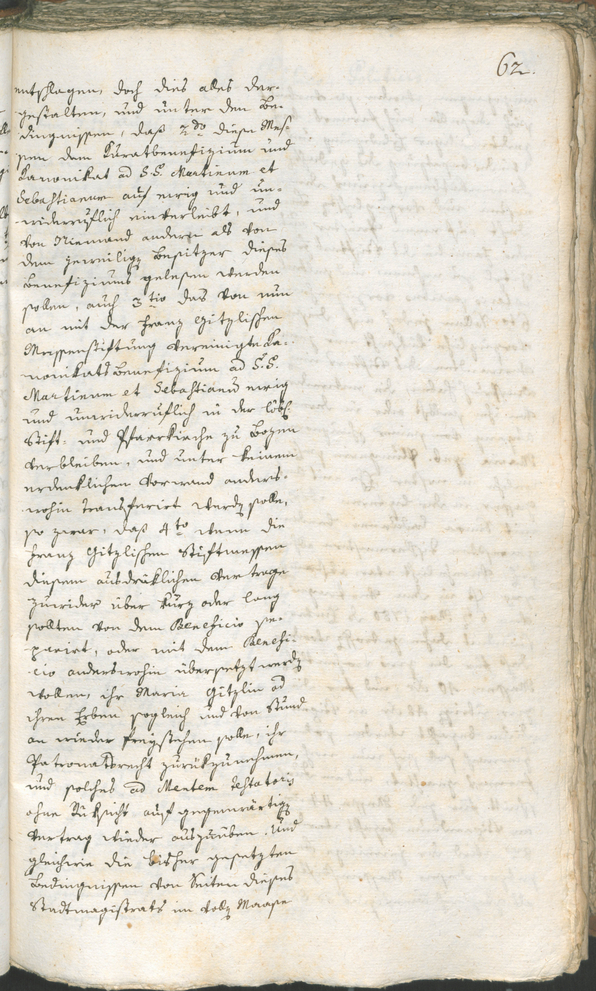 62.
entschlagen, doch dies alles der-
gestalten, und unter den Be-
dingnissen, daß 2do diese Mes-
sen dem Kuratbenefizium und
Kanonikat ad S.S. Martinum et
Sebastianum auf ewig und un-
widerruflich einverleibt, und
von Niemand andern als von
dem jeweilig Besitzer dieses
Benefiziums gelesen werden
sollen, auch 3tio das von nun
an mit der Franz Gitzlischen
Messenstiftung vereinigte Ka-
nonikats Benefizium ad S.S.
Martinum et Sebastianum ewig
und unwiderruflich in der löbl.
Stift- und Pfarrkirche zu Bozen
verbleiben, und unter keinem
erdenklichen Vorwand anders-
wohin transferirt werden solle,
so zwar, daß 4to wenn die
Franz Gitzlischen Stiftmessen
diesem ausdrüklichen Vertrage
zuwider über kurz oder lang
sollten von dem Beneficio se-
parirt, oder mit dem Benefi-
cio anderswohin übersetzt werden
wollen, ihr Maria Gitzlin od
ihren Erben sogleich und von Stund
an wieder freystehen solle, ihr
Patronatsrecht zurükzunehmen,
und solches ad Mentem Testatoris
ohne Rüksicht auf gegenwärtigen
Vertrag wieder auszuüben. Und
gleichwie die bisher gesetzten
Bedingnissen von Seiten dieses
Stadtmagistrats im vollen Maase